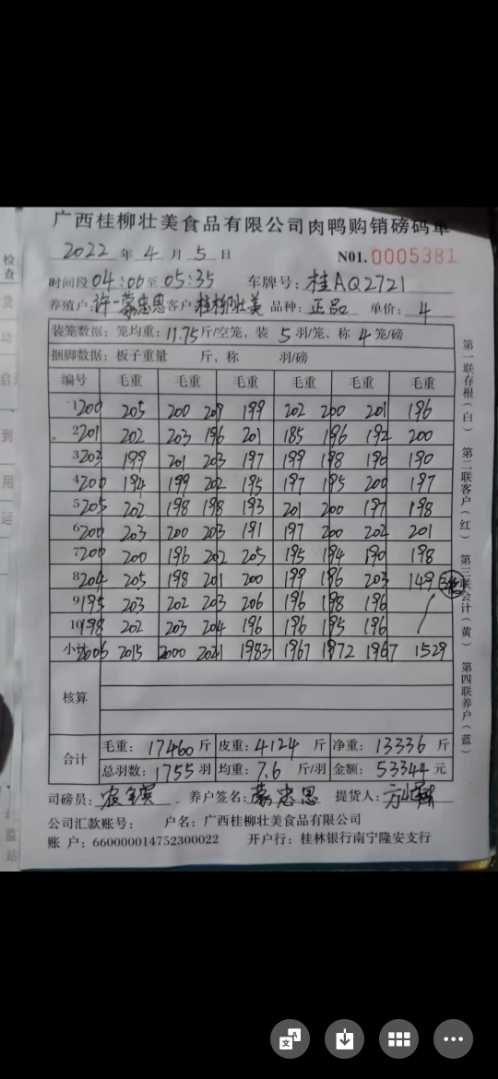 广西桂柳壮美食品有限公司肉鸭购销磅码单
2022 年 4 月 5 日 N01. 0005381
时间段 04:00 至 05:35 车牌号: 桂AQ2721
养殖户: 许一蒙忠恩 客户: 桂柳壮美 品种: 正品 单价: 4
装笼数据: 笼均重: 11.75 斤/空笼, 装 5 羽/笼、称 4 笼/磅
捆脚数据: 板子重量 斤, 称 羽/磅
编号 毛重 毛重 毛重 毛重 毛重
1 200 205 200 209 199 202 200 201 196
2 201 202 203 196 201 185 196 192 200
3 203 199 201 203 197 199 198 196 190
4 200 194 199 202 195 197 195 200 197
5 205 202 198 198 193 201 200 197 198
6 200 203 200 203 191 197 200 202 201
7 200 200 196 202 205 195 194 190 198
8 204 205 198 201 200 199 196 203 149
9 195 203 202 203 206 196 198 196
10 198 202 203 204 196 196 195 196
小计 2005 2015 2000 2021 1983 1967 1972 1967 1529
核算
合计 毛重: 17460 斤 皮重: 4124 斤 净重: 13336 斤
总羽数: 1755 羽 均重: 7.6 斤/羽 金额: 53344 元
司磅员: 养户签名: 蒙忠恩 提货人:
公司汇款账号: 户名: 广西桂柳壮美食品有限公司
账 户: 660000014752300022 开户行: 桂林银行南宁隆安支行
第一联存根(白) 第二联客户(红) 第三联会计(黄) 第四联养户(蓝)